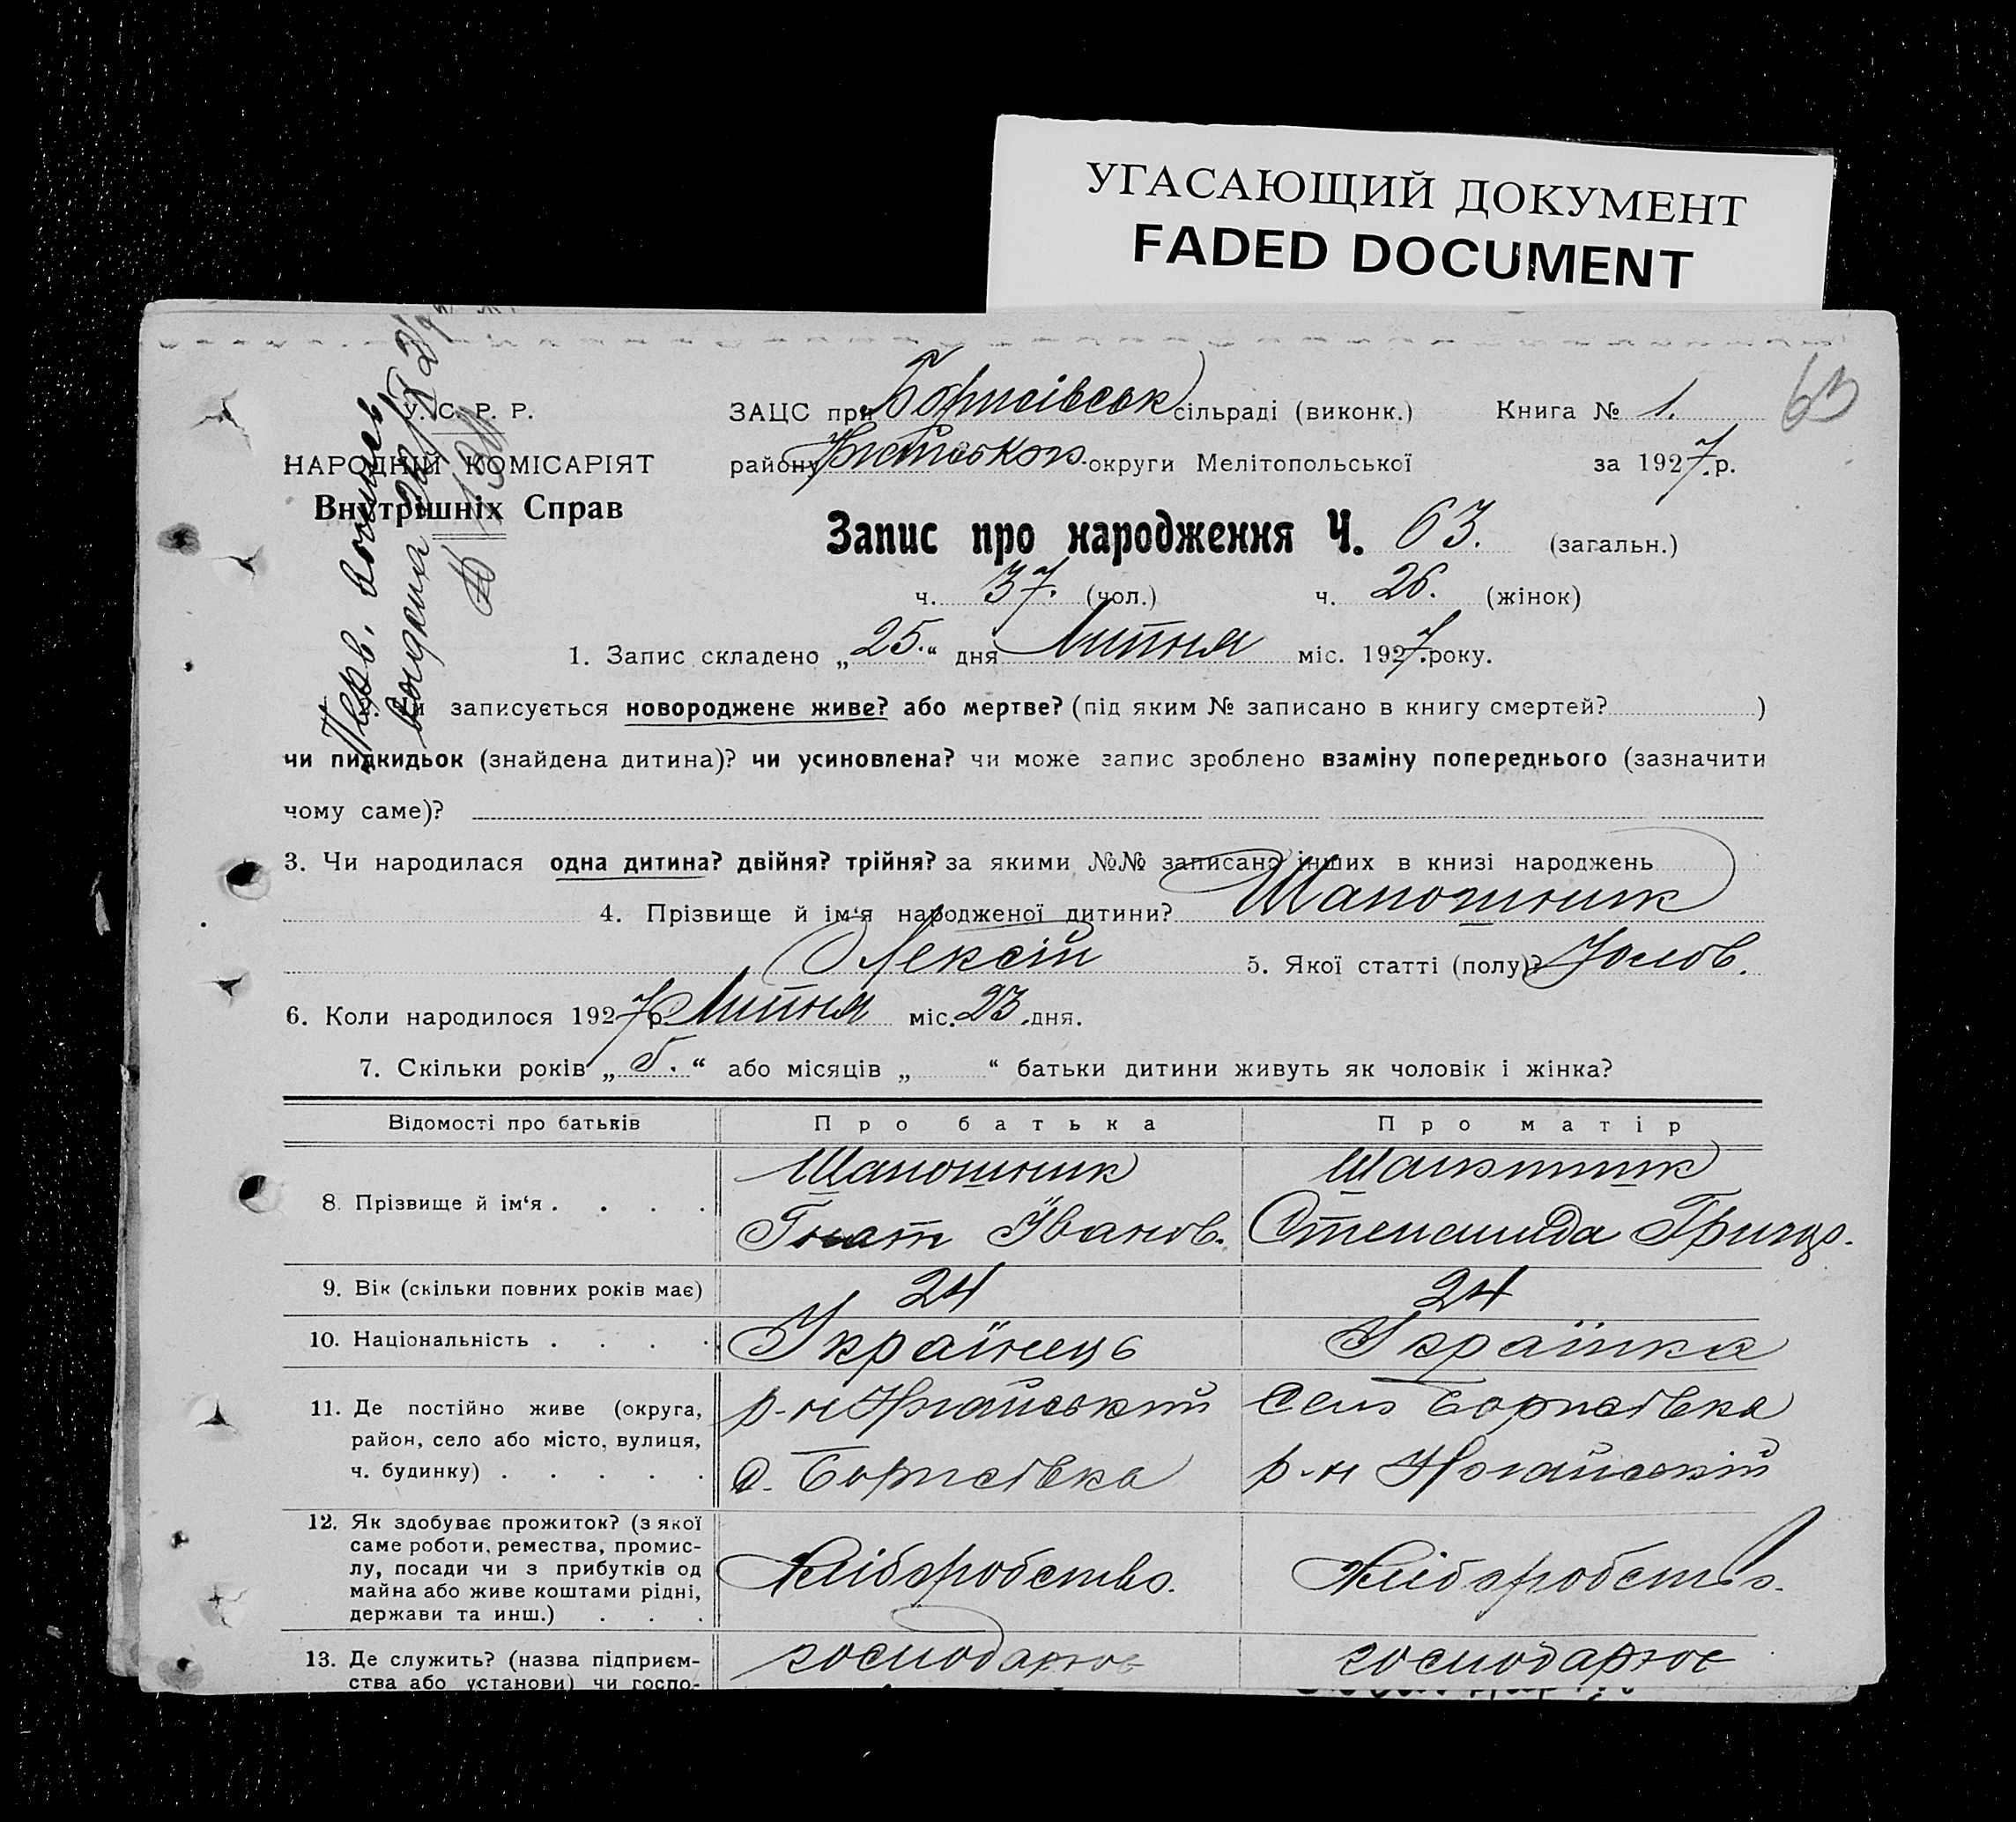 УГАСАЮЩИЙ ДОКУМЕНТ
FADED DOCUMENT
63
У. С. Р. Р.
НАРОДНІЙ КОМІСАРІЯТ
Внутрішніх Справ
ЗАЦС при Борисівськ сільраді (виконк.) Книга № 1.
району округи Мелітопольської за 1927 р.
Запис про народження Ч. 63. (загальн.)
ч. 37. (чол.) ч. 26. (жінок)
1. Запис складено „25.“ дня Липня міс. 1927. року.
записується новороджене живе? або мертве? (під яким № записано в книгу смертей? )
чи пидкидьок (знайдена дитина)? чи усиновлена? чи може запис зроблено взаміну попереднього (зазначити
чому саме)?
3. Чи народилася одна дитина? двійня? трійня? за якими №№ записано інших в книзі народжень
4. Прізвище й ім‘я народженої дитини? Шапошник
Олексій 5. Якої статті (полу)? Чолов.
6. Коли народилося 1927 р. Липня міс. 23. дня.
7. Скільки років „5.“ або місяців „ “ батьки дитини живуть як чоловік і жінка?
Відомості про батьків Про батька Про матір
8. Прізвище й ім‘я . . . . Шапошник Шапошник
Гнат Іванов. Степанида Григор.
9. Вік (скільки повних років має) 24 24
10. Національність . . . . Українець Українка
11. Де постійно живе (округа, район, село або місто, вулиця, ч. будинку) . . . . . р-н Ногайський Село Борисівка
с. Борисівка р-н Ногайський
12. Як здобуває прожиток? (з якої саме роботи, ремества, промис-
лу, посади чи з прибутків од
майна або живе коштами рідні,
держави та инш.) . . . Хліборобство. Хліборобство.
13. Де служить? (назва підприєм- господарює господарює
ства або установи) чи госпо-